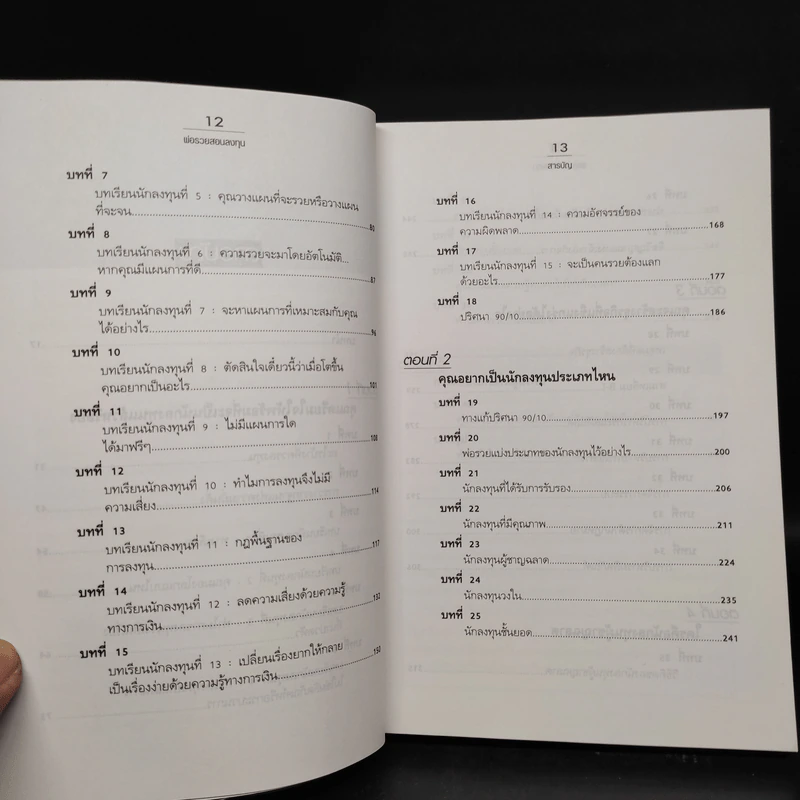 12
พ่อรวยสอนลงทุน
บทที่ 7
บทเรียนนักลงทุนที่ 5 : คุณวางแผนที่จะรวยหรือวางแผน
ที่จะจน.....80
บทที่ 8
บทเรียนนักลงทุนที่ 6 : ความรวยจะมาโดยอัตโนมัติ...
หากคุณมีแผนการที่ดี.....87
บทที่ 9
บทเรียนนักลงทุนที่ 7 : จะหาแผนการที่เหมาะสมกับคุณ
ได้อย่างไร.....96
บทที่ 10
บทเรียนนักลงทุนที่ 8 : ตัดสินใจเดี๋ยวนี้ว่าเมื่อโตขึ้น
คุณอยากเป็นอะไร.....101
บทที่ 11
บทเรียนนักลงทุนที่ 9 : ไม่มีแผนการใด
ได้มาฟรีๆ.....108
บทที่ 12
บทเรียนนักลงทุนที่ 10 : ทำไมการลงทุนจึงไม่มี
ความเสี่ยง.....114
บทที่ 13
บทเรียนนักลงทุนที่ 11 : กฎพื้นฐานของ
การลงทุน.....117
บทที่ 14
บทเรียนนักลงทุนที่ 12 : ลดความเสี่ยงด้วยความรู้
ทางการเงิน.....132
บทที่ 15
บทเรียนนักลงทุนที่ 13 : เปลี่ยนเรื่องยากให้กลาย
เป็นเรื่องง่ายด้วยความรู้ทางการเงิน.....150
13
สารบัญ
บทที่ 16
บทเรียนนักลงทุนที่ 14 : ความอัศจรรย์ของ
ความผิดพลาด.....168
บทที่ 17
บทเรียนนักลงทุนที่ 15 : จะเป็นคนรวยต้องแลก
ด้วยอะไร.....177
บทที่ 18
ปริศนา 90/10.....186
ตอนที่ 2
คุณอยากเป็นนักลงทุนประเภทไหน
บทที่ 19
ทางแก้ปริศนา 90/10.....197
บทที่ 20
พ่อรวยแบ่งประเภทของนักลงทุนไว้อย่างไร.....200
บทที่ 21
นักลงทุนที่ได้รับการรับรอง.....206
บทที่ 22
นักลงทุนที่มีคุณภาพ.....211
บทที่ 23
นักลงทุนผู้ชาญฉลาด.....224
บทที่ 24
นักลงทุนวงใน.....235
บทที่ 25
นักลงทุนชั้นยอด.....241